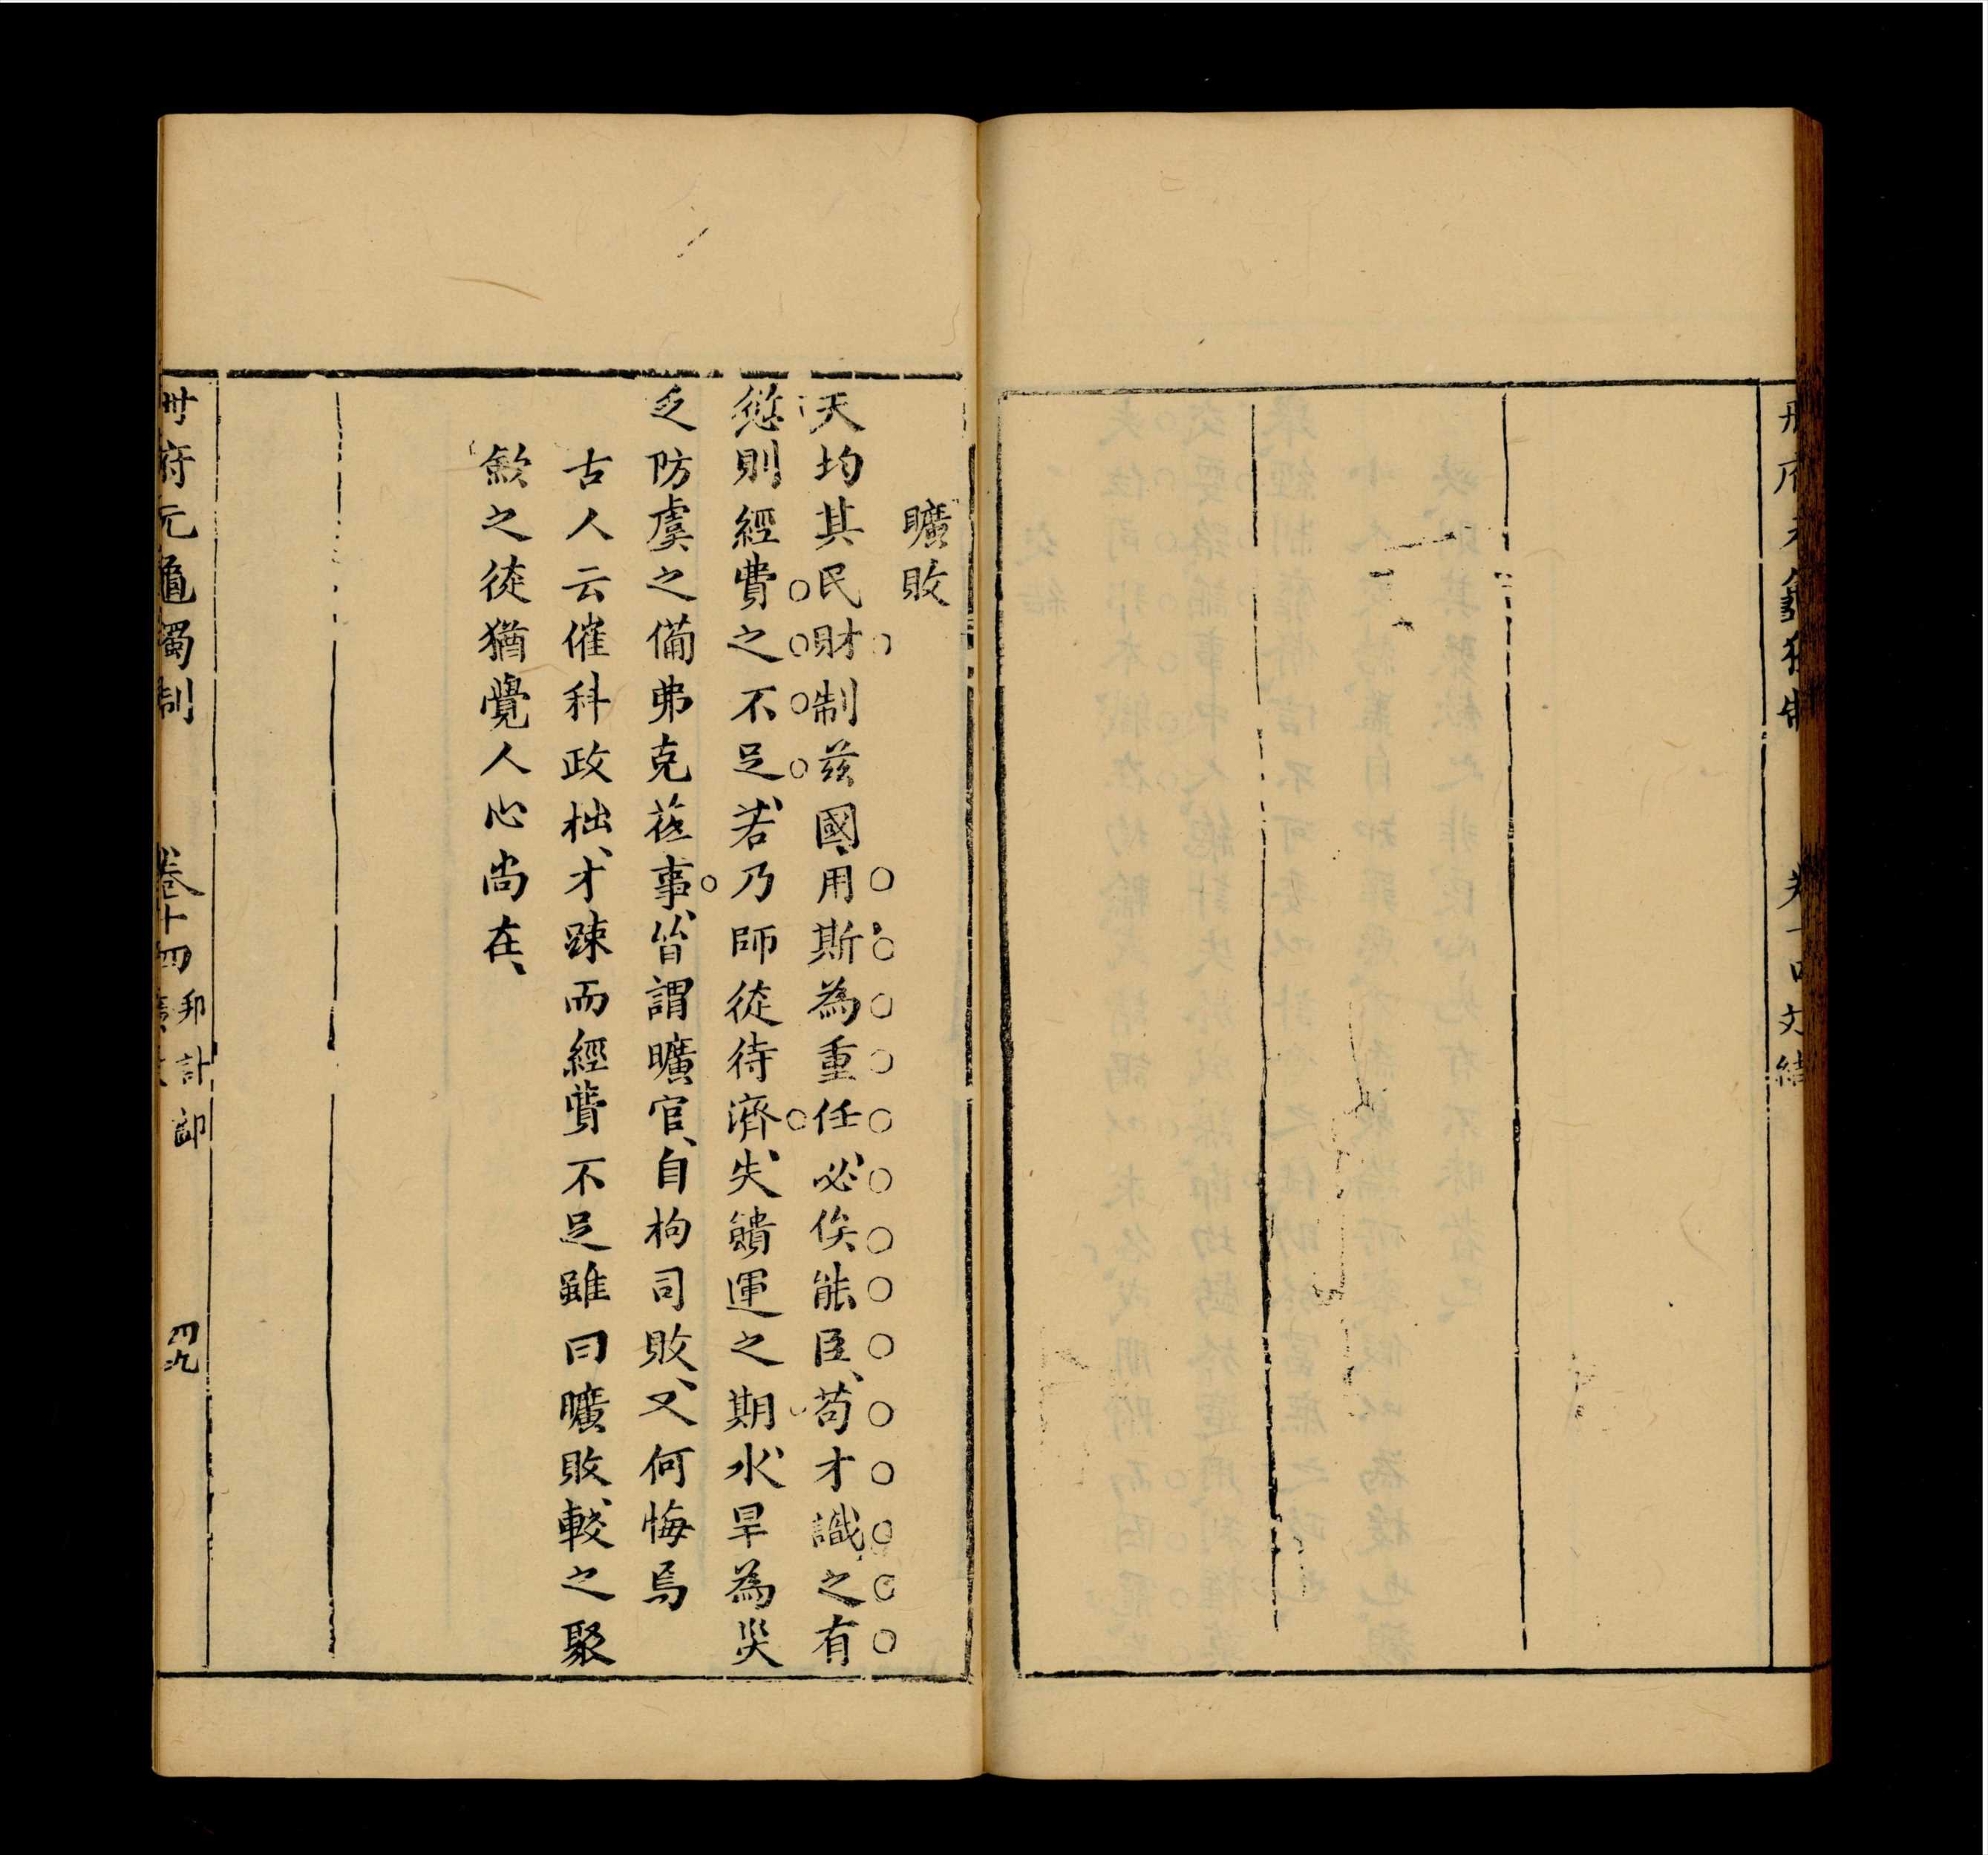 曠敗
天均其民財制茲國用斯為重任必俟能臣苟才識之有
愆則經費之不足若乃師徒待濟失饋運之期水旱為災
乏防虞之備弗克蒞事皆謂曠官自拘司敗又何悔焉
古人云催科政拙才踈而經費不足雖曰曠敗較之聚
歛之徒猶覺人心尚在
府元龜獨制
卷十四
邦計部
四九